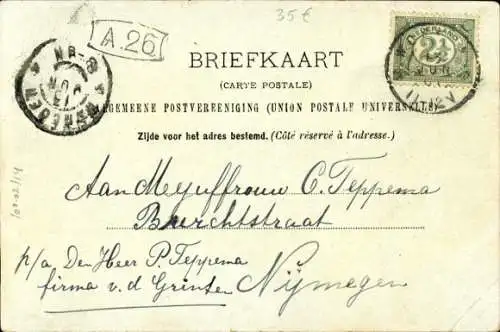 35 €
A.26
BRIEFKAART
(CARTE POSTALE)
ALGEMEENE POSTVEREENIGING (UNION POSTALE UNIVERSELLE)
Zijde voor het adres bestemd. (Côté réservé à l'adresse.)
NEDERLAND
2½
Aan Mejuffrouw C. Teppema
Burchtstraat
p/a Den Heer P. Teppema
firma v. d. Grinten Nijmegen